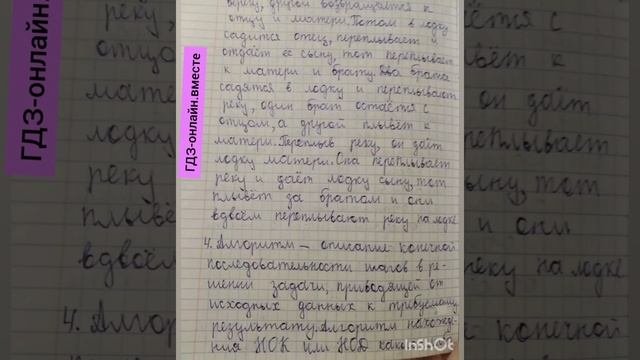 ГДЗ-онлайн.вместе
берегу, другой возвращается к
отцу и матери. Потом в лодку
садится отец, переплывает и
отдаёт её сыну, тот переплывает
к матери и брату. Два брата
садятся в лодку и переплывают
реку, один брат остаётся с
отцом, а другой плывёт к
матери. Переплыв реку, он даёт
лодку матери. Она переплывает
реку и даёт лодку сыну, тот
плывёт за братом и они
вдвоём переплывают реку на лодке
4. Алгоритм – описание конечной
последовательности шагов в ре-
шении задачи, приводящей от
исходных данных к требуемому
результату. Алгоритм нахожде-
ния НОК или НОД
InShOt